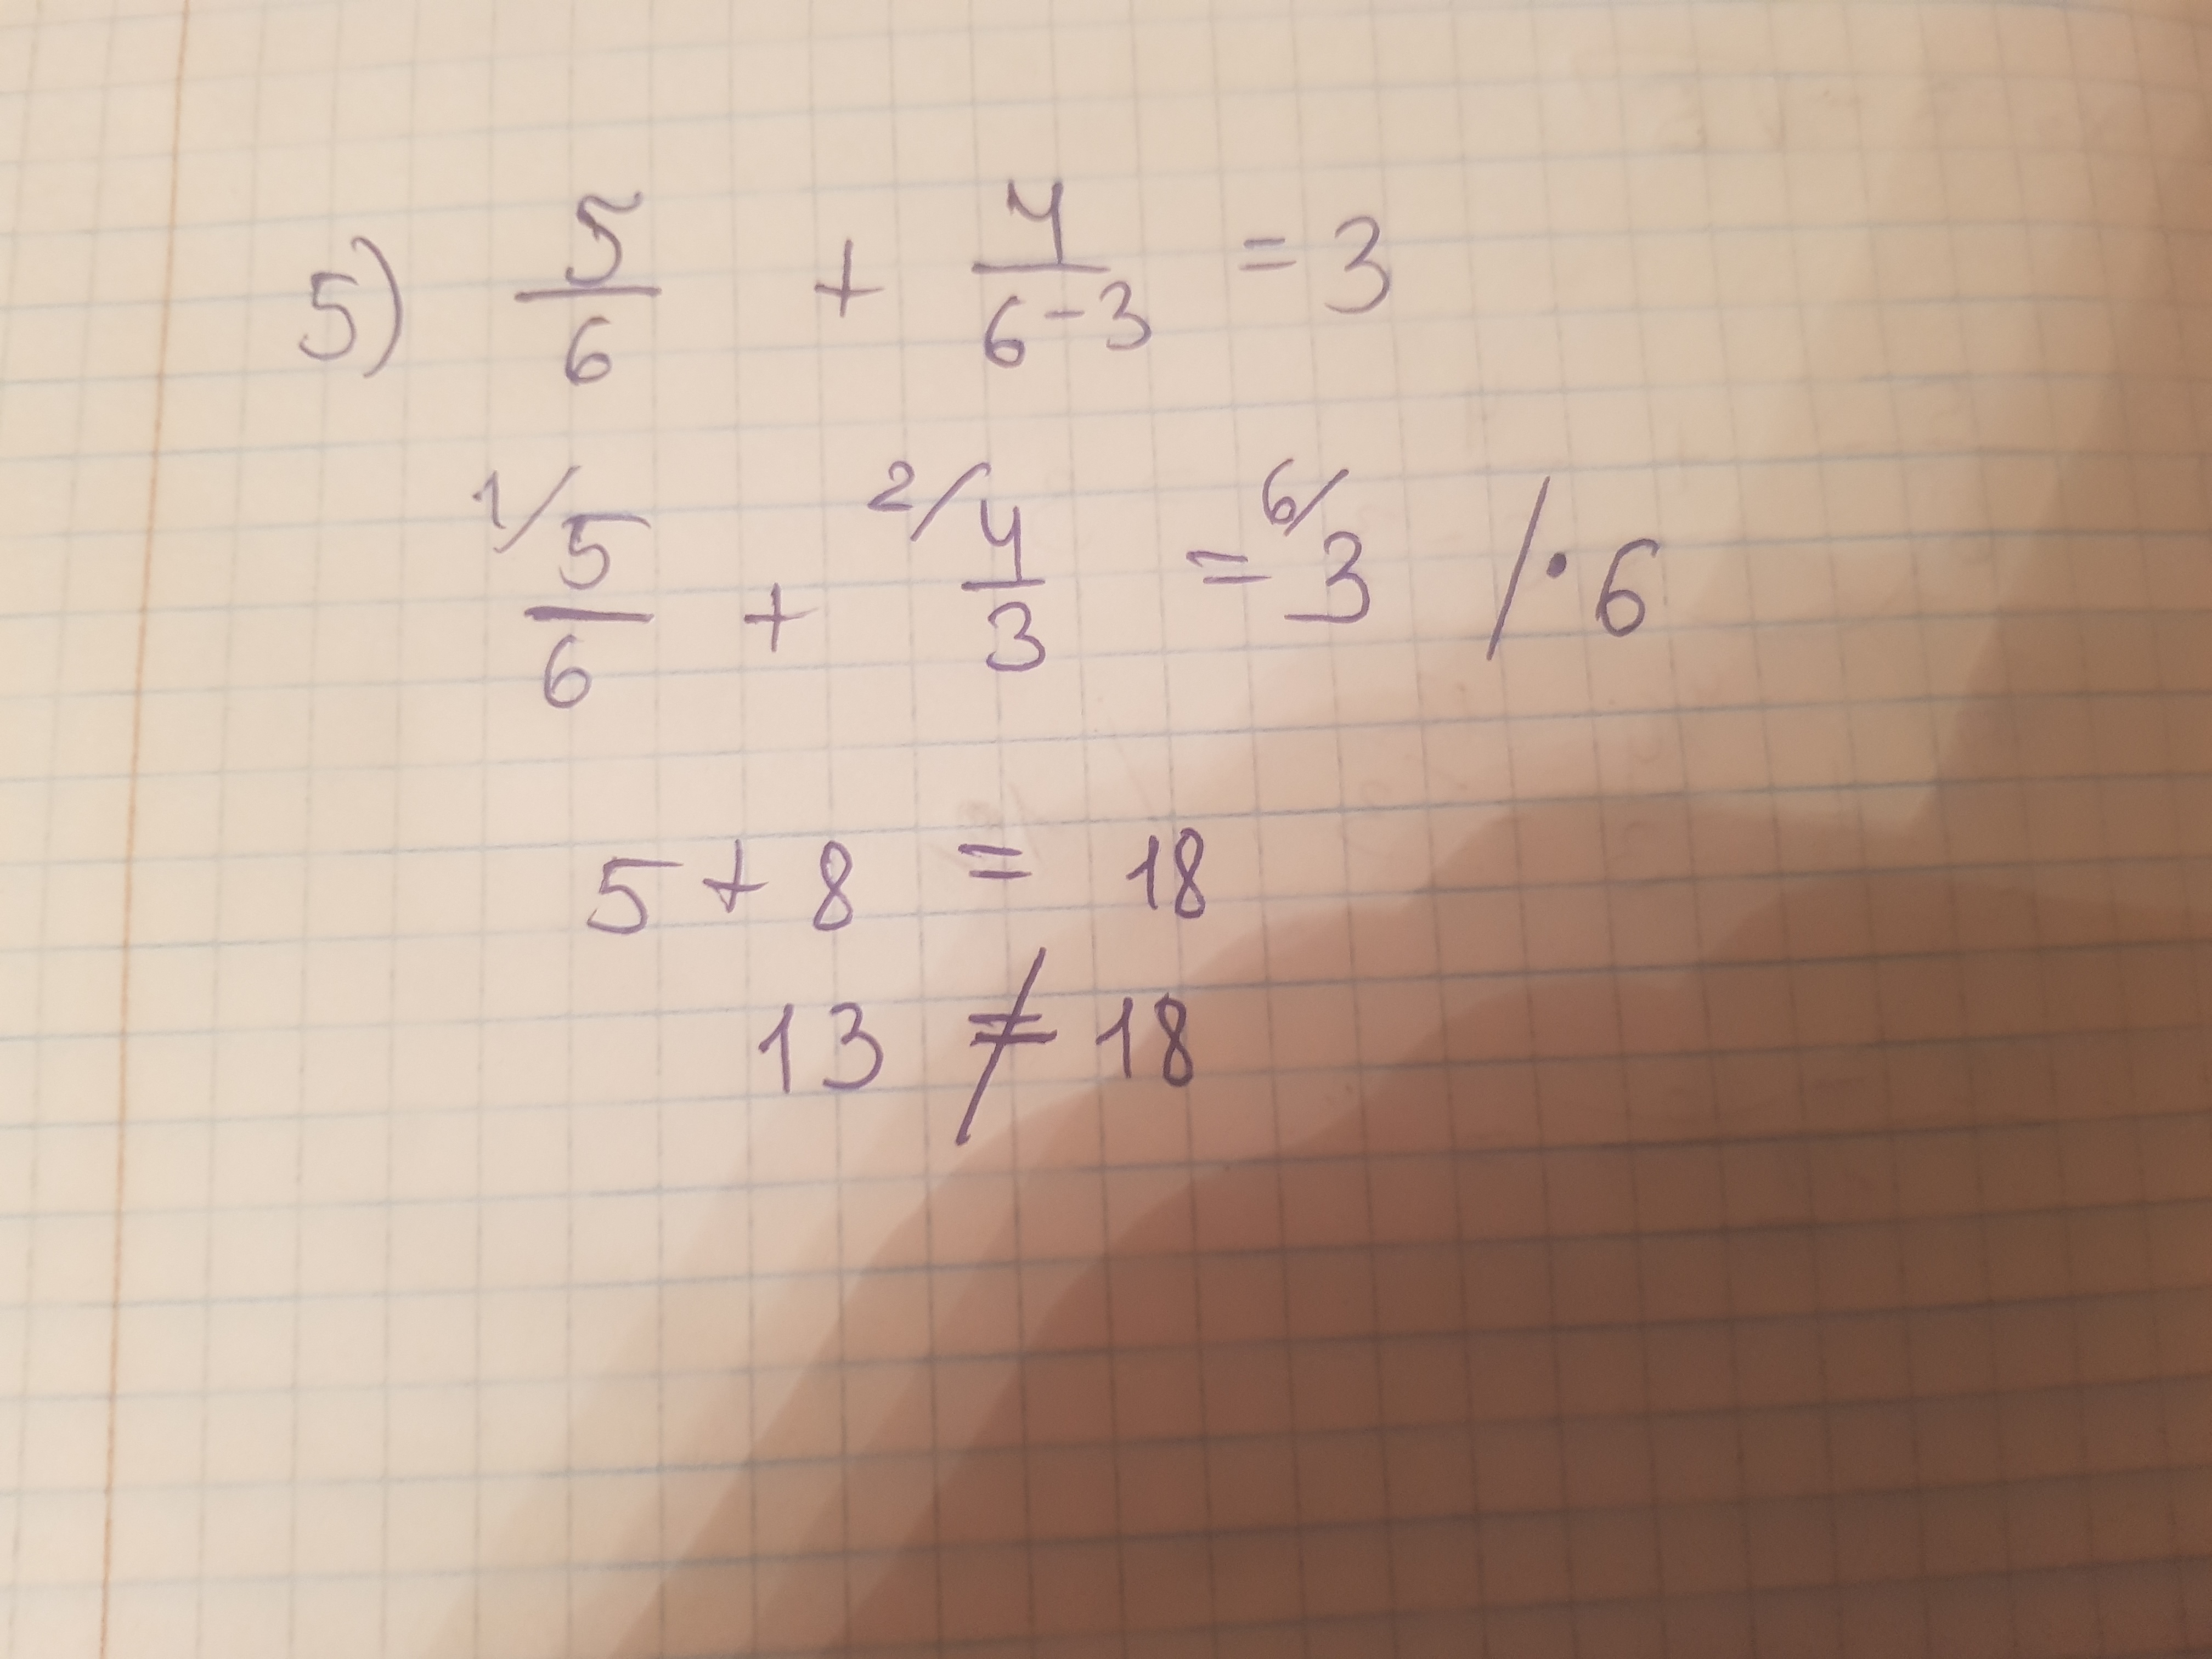 5) 5/6 + 4/(6-3) = 3
1/ 5/6 + 2/ 4/3 = 6/ 3 / · 6
5 + 8 = 18
13 ≠ 18